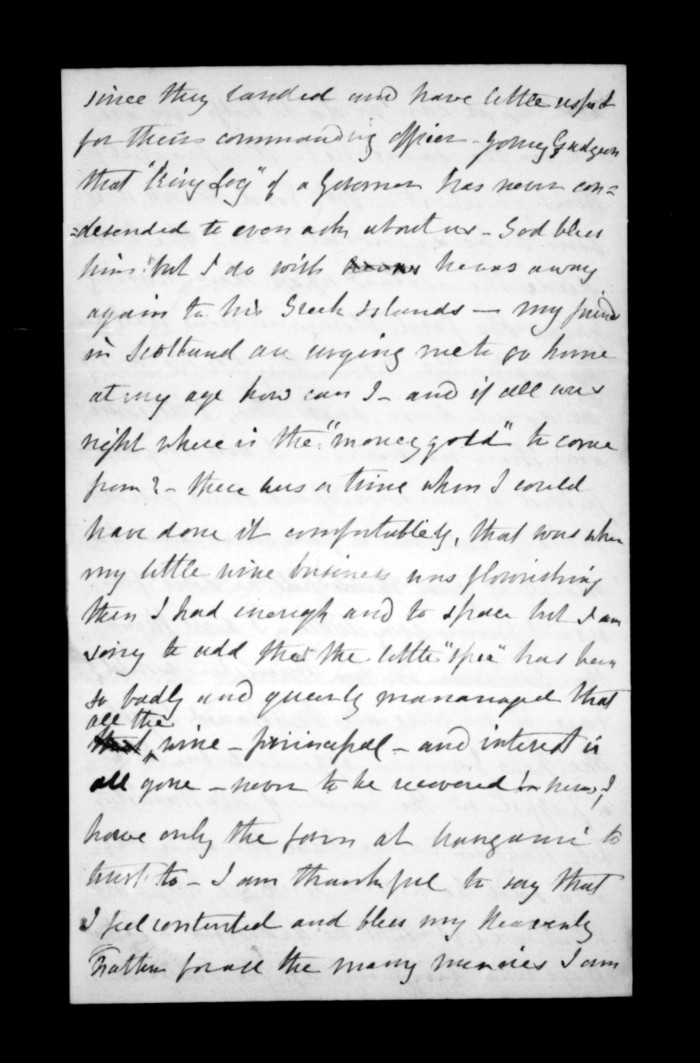 since they landed and have little respect
for theirs commanding officer - young Gudgeon
that "King Log" of a Governor has never con=
=descended to even ask about us - God bless
him! but I do wish he was away
again to his Greek Islands - my friends
in Scotland are urging me to go home
at my age how can I - and if all was
right where is the "money gold" to come
from? - there was a time when I could
have done it comfortably, that was when
my little wine business was flourishing
then I had enough and to spare but I am
sorry to add that the little "spec" has been
so badly and queerly mananaged that
all the
wine - principal - and interest is
all gone - never to be recovered I
have only the farm at to
trust to - I am thankful to say that
I feel contented and bless my Heavenly
Father for all the many mercies I am